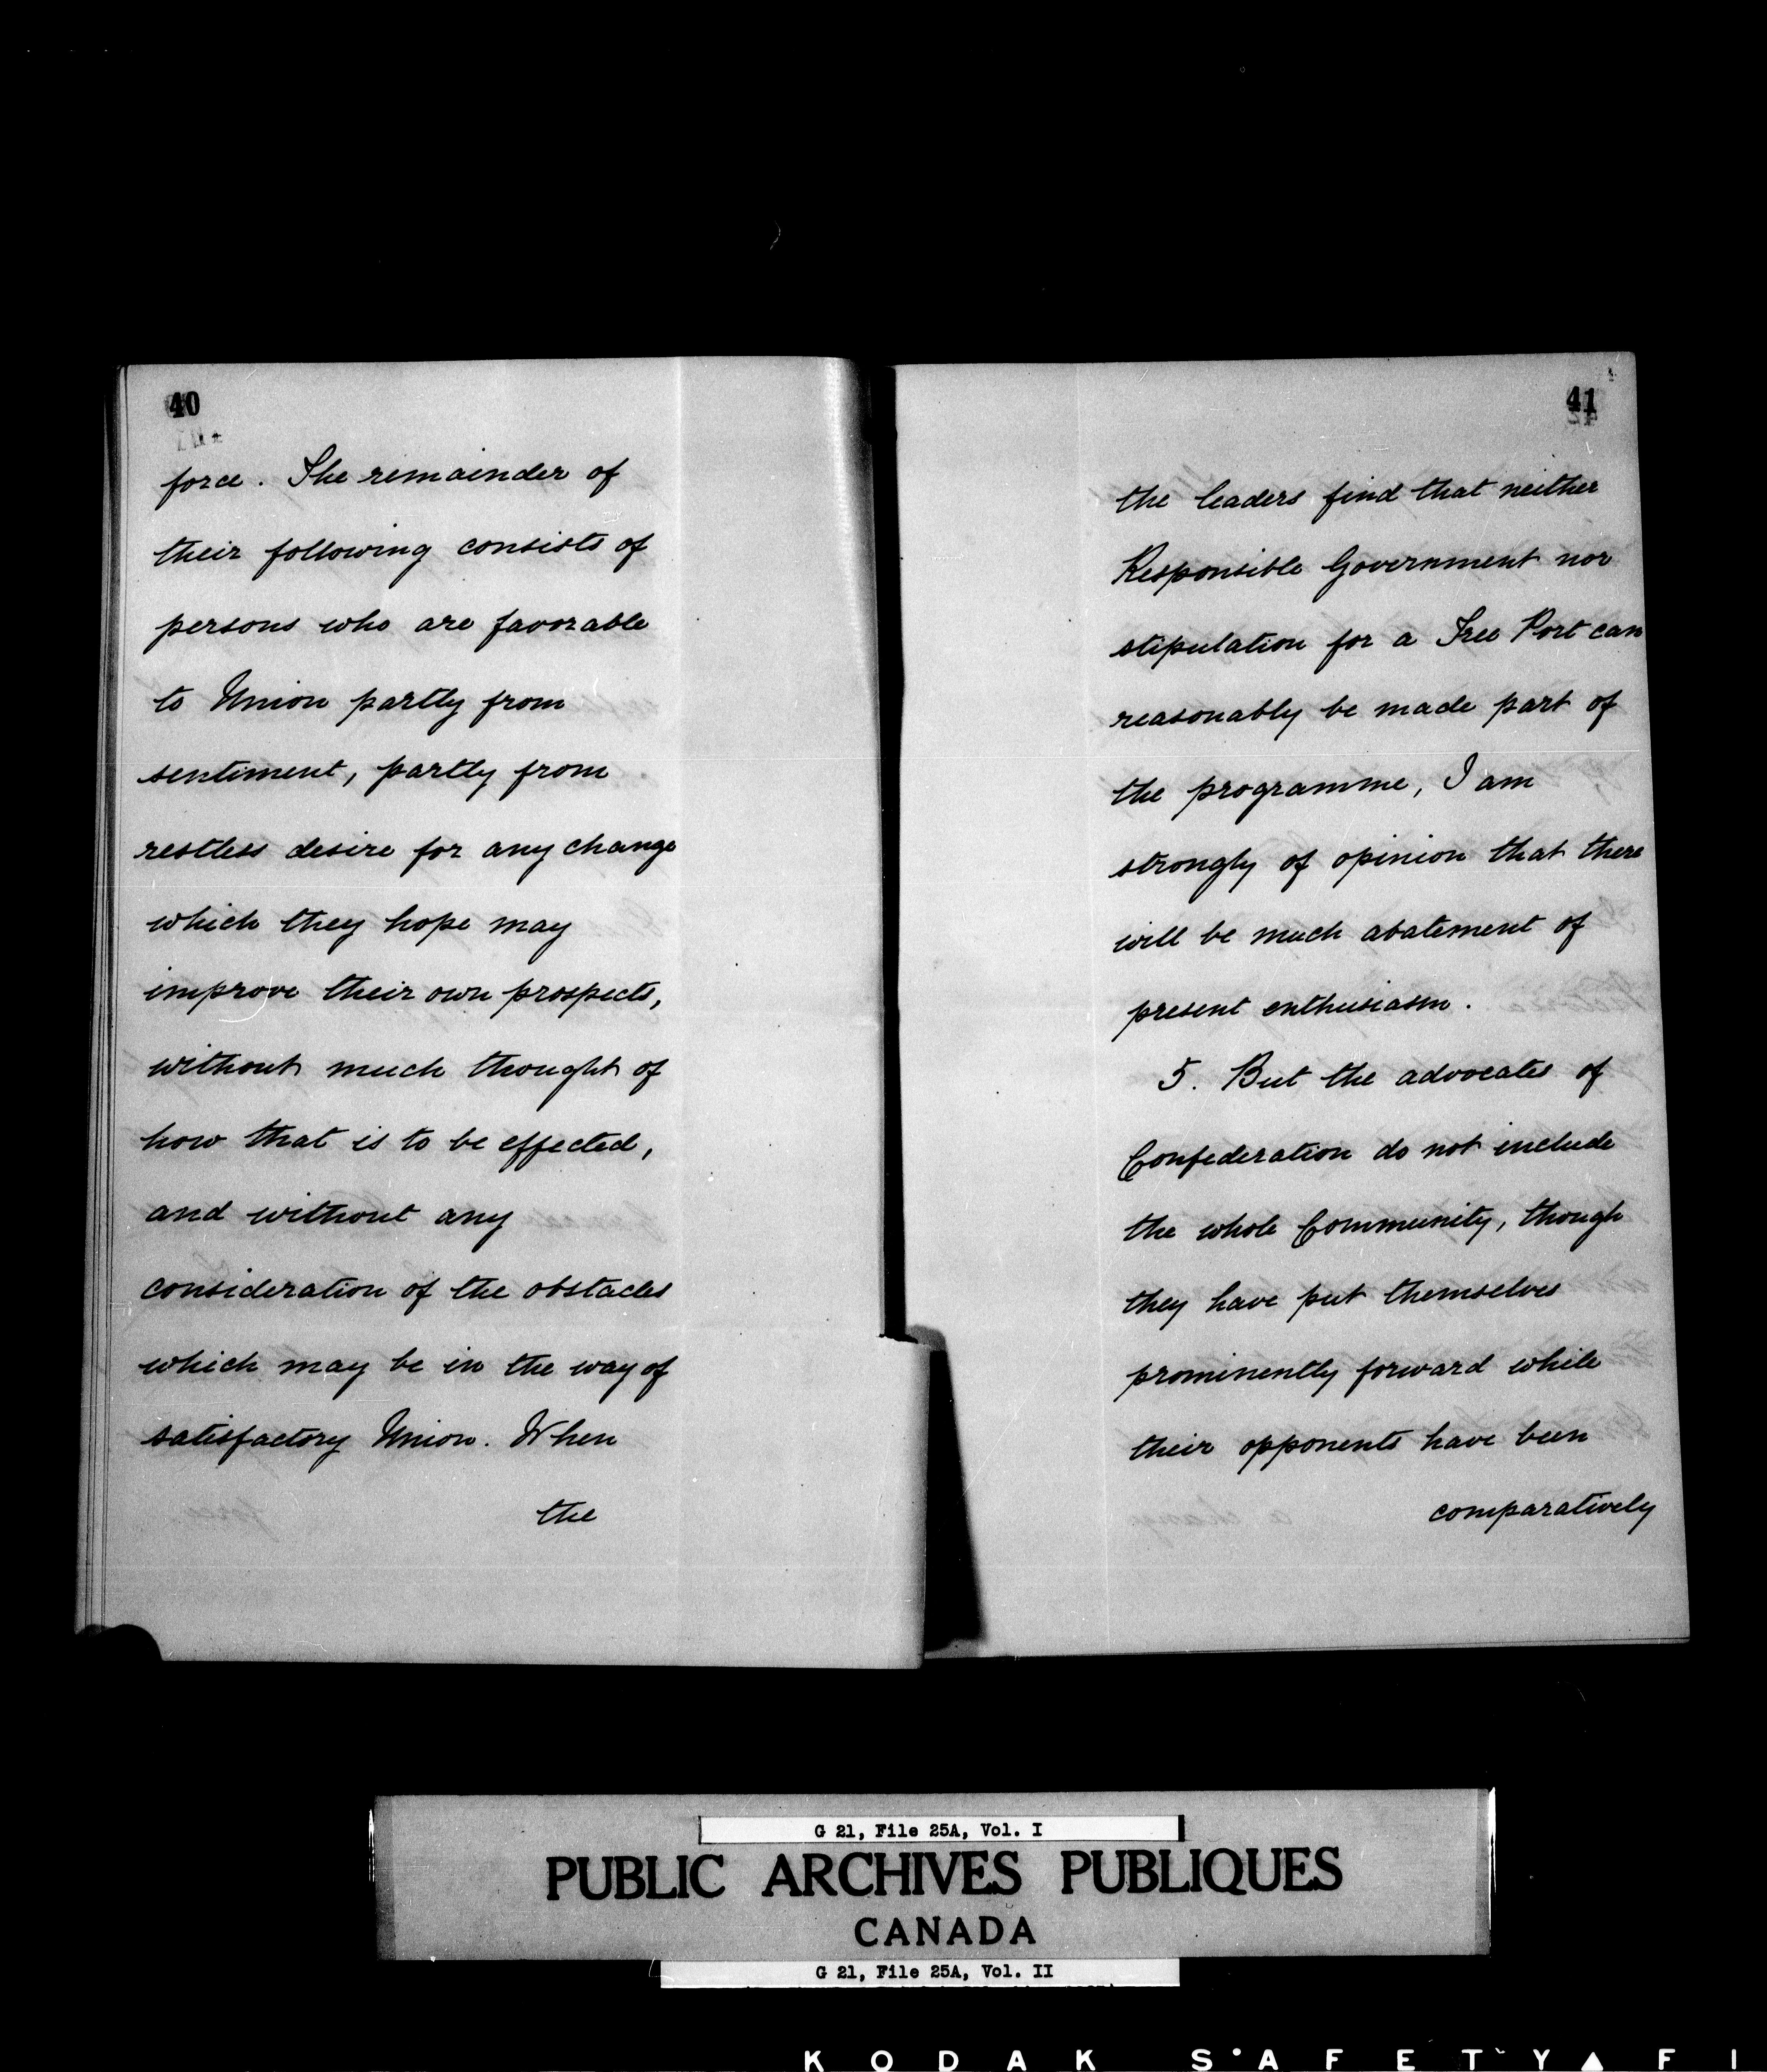 40
force. The remainder of
their following consists of
persons who are favorable
to Union partly from
sentiment, partly from
restless desire for any change
which they hope may
improve their own prospects,
without much thought of
how that is to be effected,
and without any
consideration of the obstacles
which may be in the way of
satisfactory Union. When
the
41
the leaders find that neither
Responsible Government nor
stipulation for a Free Port can
reasonably be made part of
the programme, I am
strongly of opinion that there
will be much abatement of
present enthusiasm.
5. But the advocates of
Confederation do not include
the whole Community, though
they have put themselves
prominently forward while
their opponents have been
comparatively
G 21, File 25A, Vol. I
PUBLIC ARCHIVES PUBLIQUES
CANADA
G 21, File 25A, Vol. II
KODAK SAFETY FI